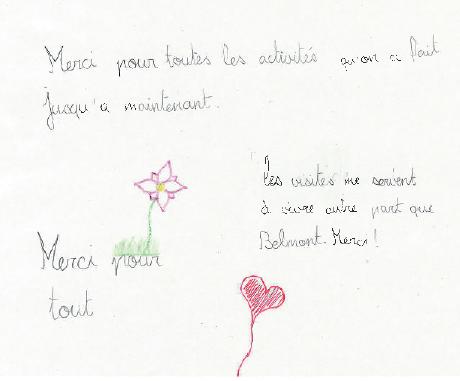 Merci pour toutes les activités qu'on a fait
jusqu'a maintenant.
Les visites me servent
à vivre autre part que
Belmont. Merci!
Merci pour
tout